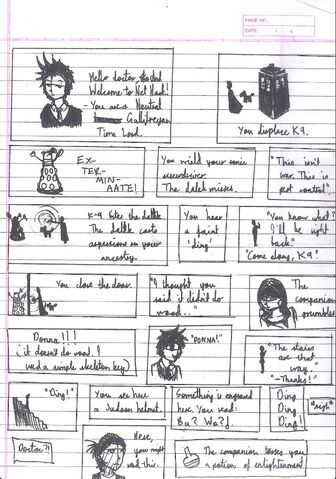 PAGE NO.
DATE:
Hello doctor
Welcome to Net Hack!
- You are a Neutral
Gallifreyan
Time Lord.
You displace K9.
EX-
TER-
MIN-
AATE!
You wield your sonic
screwdriver.
The dalek misses.
"This isn't
war. This is
pest control".
K-9 bites the dalek.
The dalek casts
aspersions on your
ancestry.
You hear
a faint
'ding'
"You know what?
I'll be right
back"
"Come along, K9."
You close the door.
"I thought you
said it didn't do
wood..."
The
companion
grumbles
Donna!!!
(it doesn't do wood. I
used a simple skeleton key)
"DONNA!"
"The stairs
are that
way."
"-Thanks!"
"Ding!"
You see here
a Judoon helmet.
Something is engraved
here. You read:
Ba? Wo?f.
Ding
Ding
Ding!
*sigh*
Doctor?!
Here,
you might
need this.
The companion tosses you
a potion of enlightenment